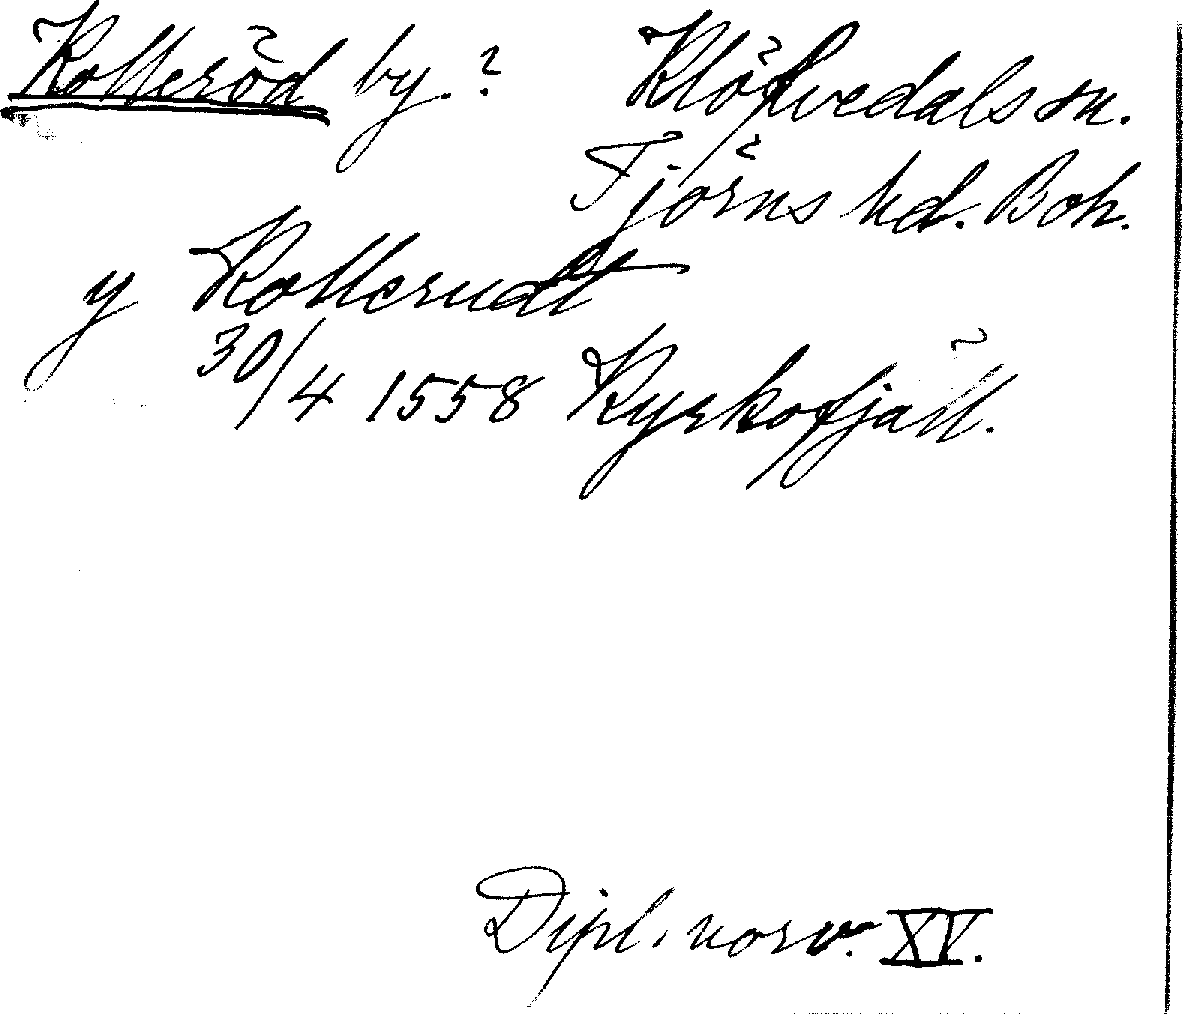 Kolleröd by.? Klöfvedals sn.
Tjörns hd. Boh.
y Kollerudt
30/4 1558 Kyrkofjäll.
Dipl. norv. XV.